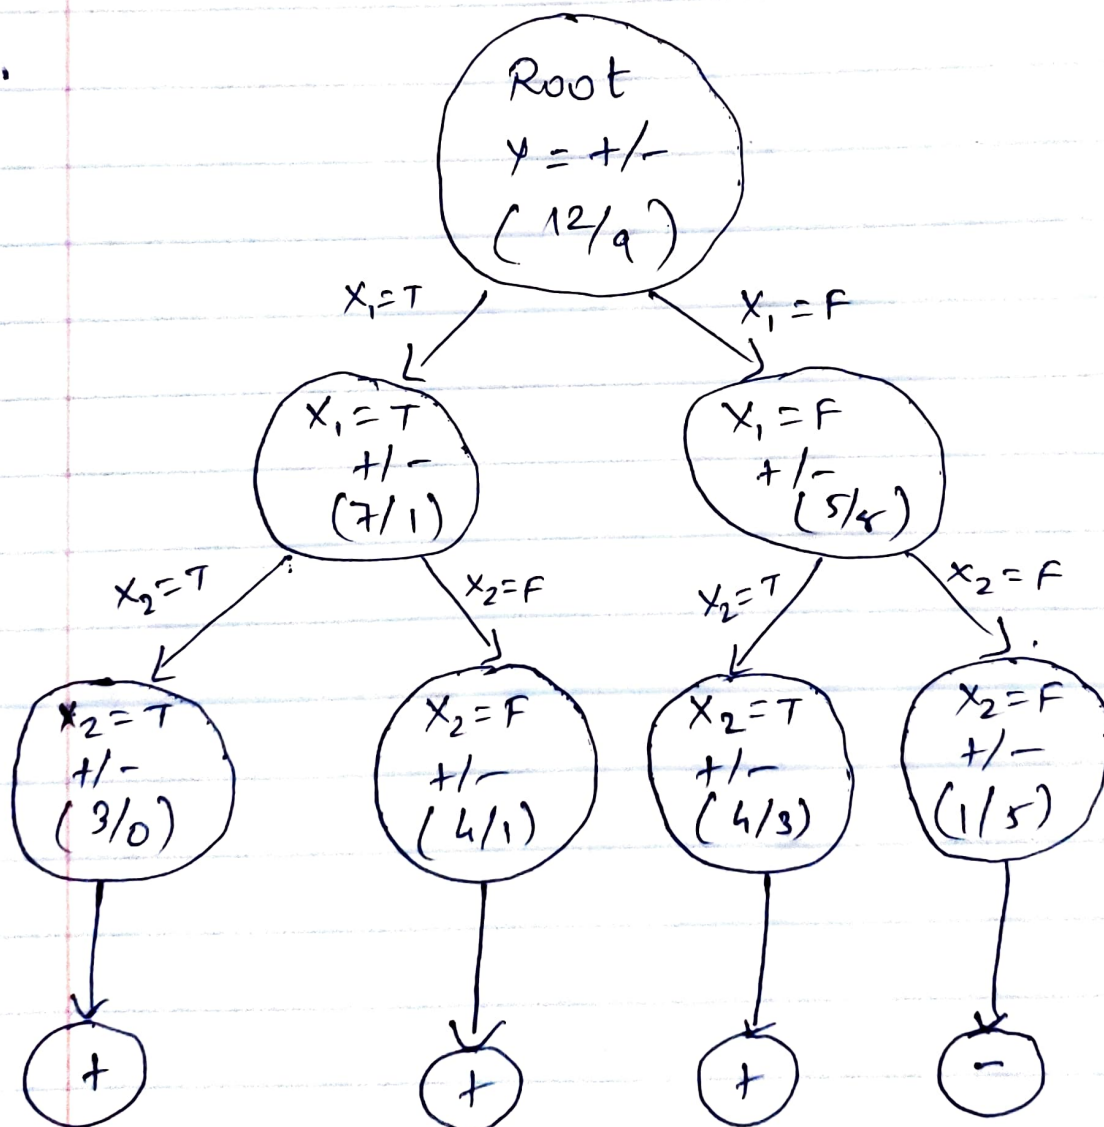 Root
Y = +/-
(12/9)
X₁=T
X₁ = F
X₁ = T
+/-
(7/1)
X₁ = F
+/-
(5/8)
X₂=T
X₂=F
X₂=T
X₂ = F
X₂ = T
+/-
(3/0)
X₂ = F
+/-
(4/1)
X₂ = T
+/-
(4/3)
X₂ = F
+/-
(1/5)
+
+
+
-